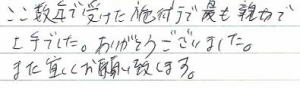 ここ数年で受けた施術で最も親切で
上手でした。ありがとうございました。
また宜しくお願い致します。